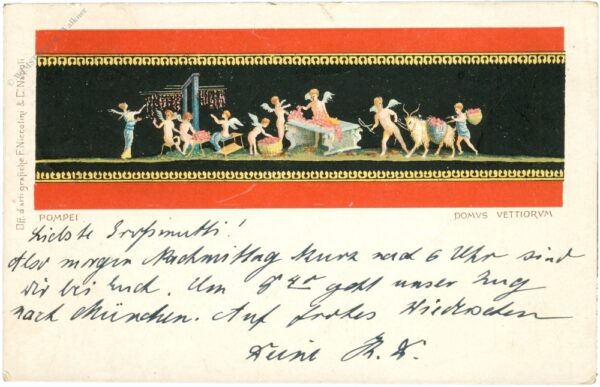 Off. d'arti grafiche F. Niccolini & C. Napoli
POMPEI
DOMVS VETTIORVM
Liebste Großmutti!
Also morgen Nachmittag kurz nach 6 Uhr sind
wir bei Euch. Um 8 geht unser Zug
nach München. Auf frohes Wiedersehen
Deine